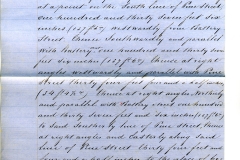 at a point in the South line of Pine Street
one hundred and thirty seven feet six
inches (137 6/12) eastwardly from Battery
Street thence Southwardly and parallel
with Battery one hundred and thirty seven
feet six inches (137 6/12) thence at right
angles westwardly and parallel with Pine
Street thirty four feet
(34 /12) thence at right angles Northerly
and parallel with Battery street one hundred
and thirty seven feet and six inches (137 6/12)
to said Southerly line of Pine street thence
at right angles and Easterly along said
line of Pine Street thirty four feet and